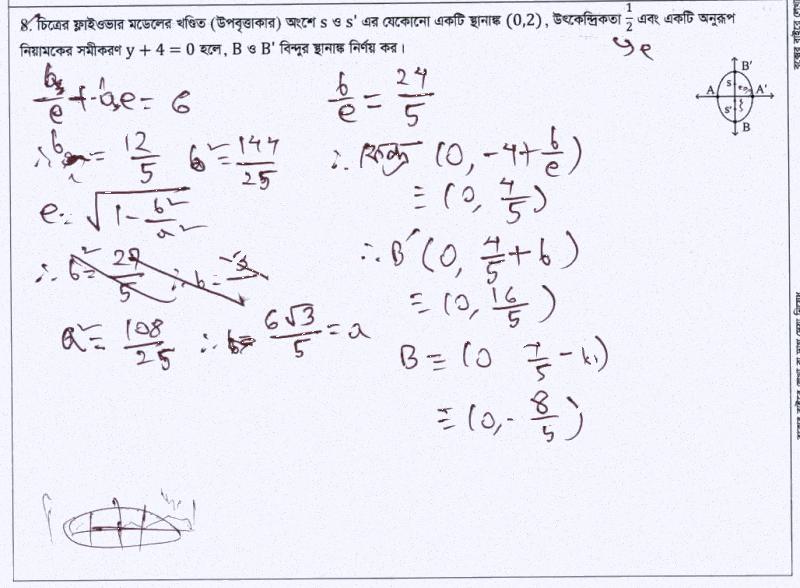 8. চিত্রের ফ্লাইওভার মডেলের খণ্ডিত (উপবৃত্তাকার) অংশে s ও s' এর যেকোনো একটি স্থানাঙ্ক (0,2), উৎকেন্দ্রিকতা 1/2 এবং একটি অনুরূপ
নিয়ামকের সমীকরণ y + 4 = 0 হলে, B ও B' বিন্দুর স্থানাঙ্ক নির্ণয় কর।
e
B'
S
A A'
S'
B
b/e + be = 6
∴ b = 12/5 b² = 144/25
e = √(1 - b²/a²)
∴ b² = 29/5 ∴ b =
a² = 108/25 ∴ 6√3/5 = a
b/e = 24/5
∴ কেন্দ্র (0, -4 + b/e)
≡ (0, 4/5)
∴ B' (0, 4/5 + b)
≡ (0, 16/5)
B ≡ (0 4/5 - b)
≡ (0, -8/5)